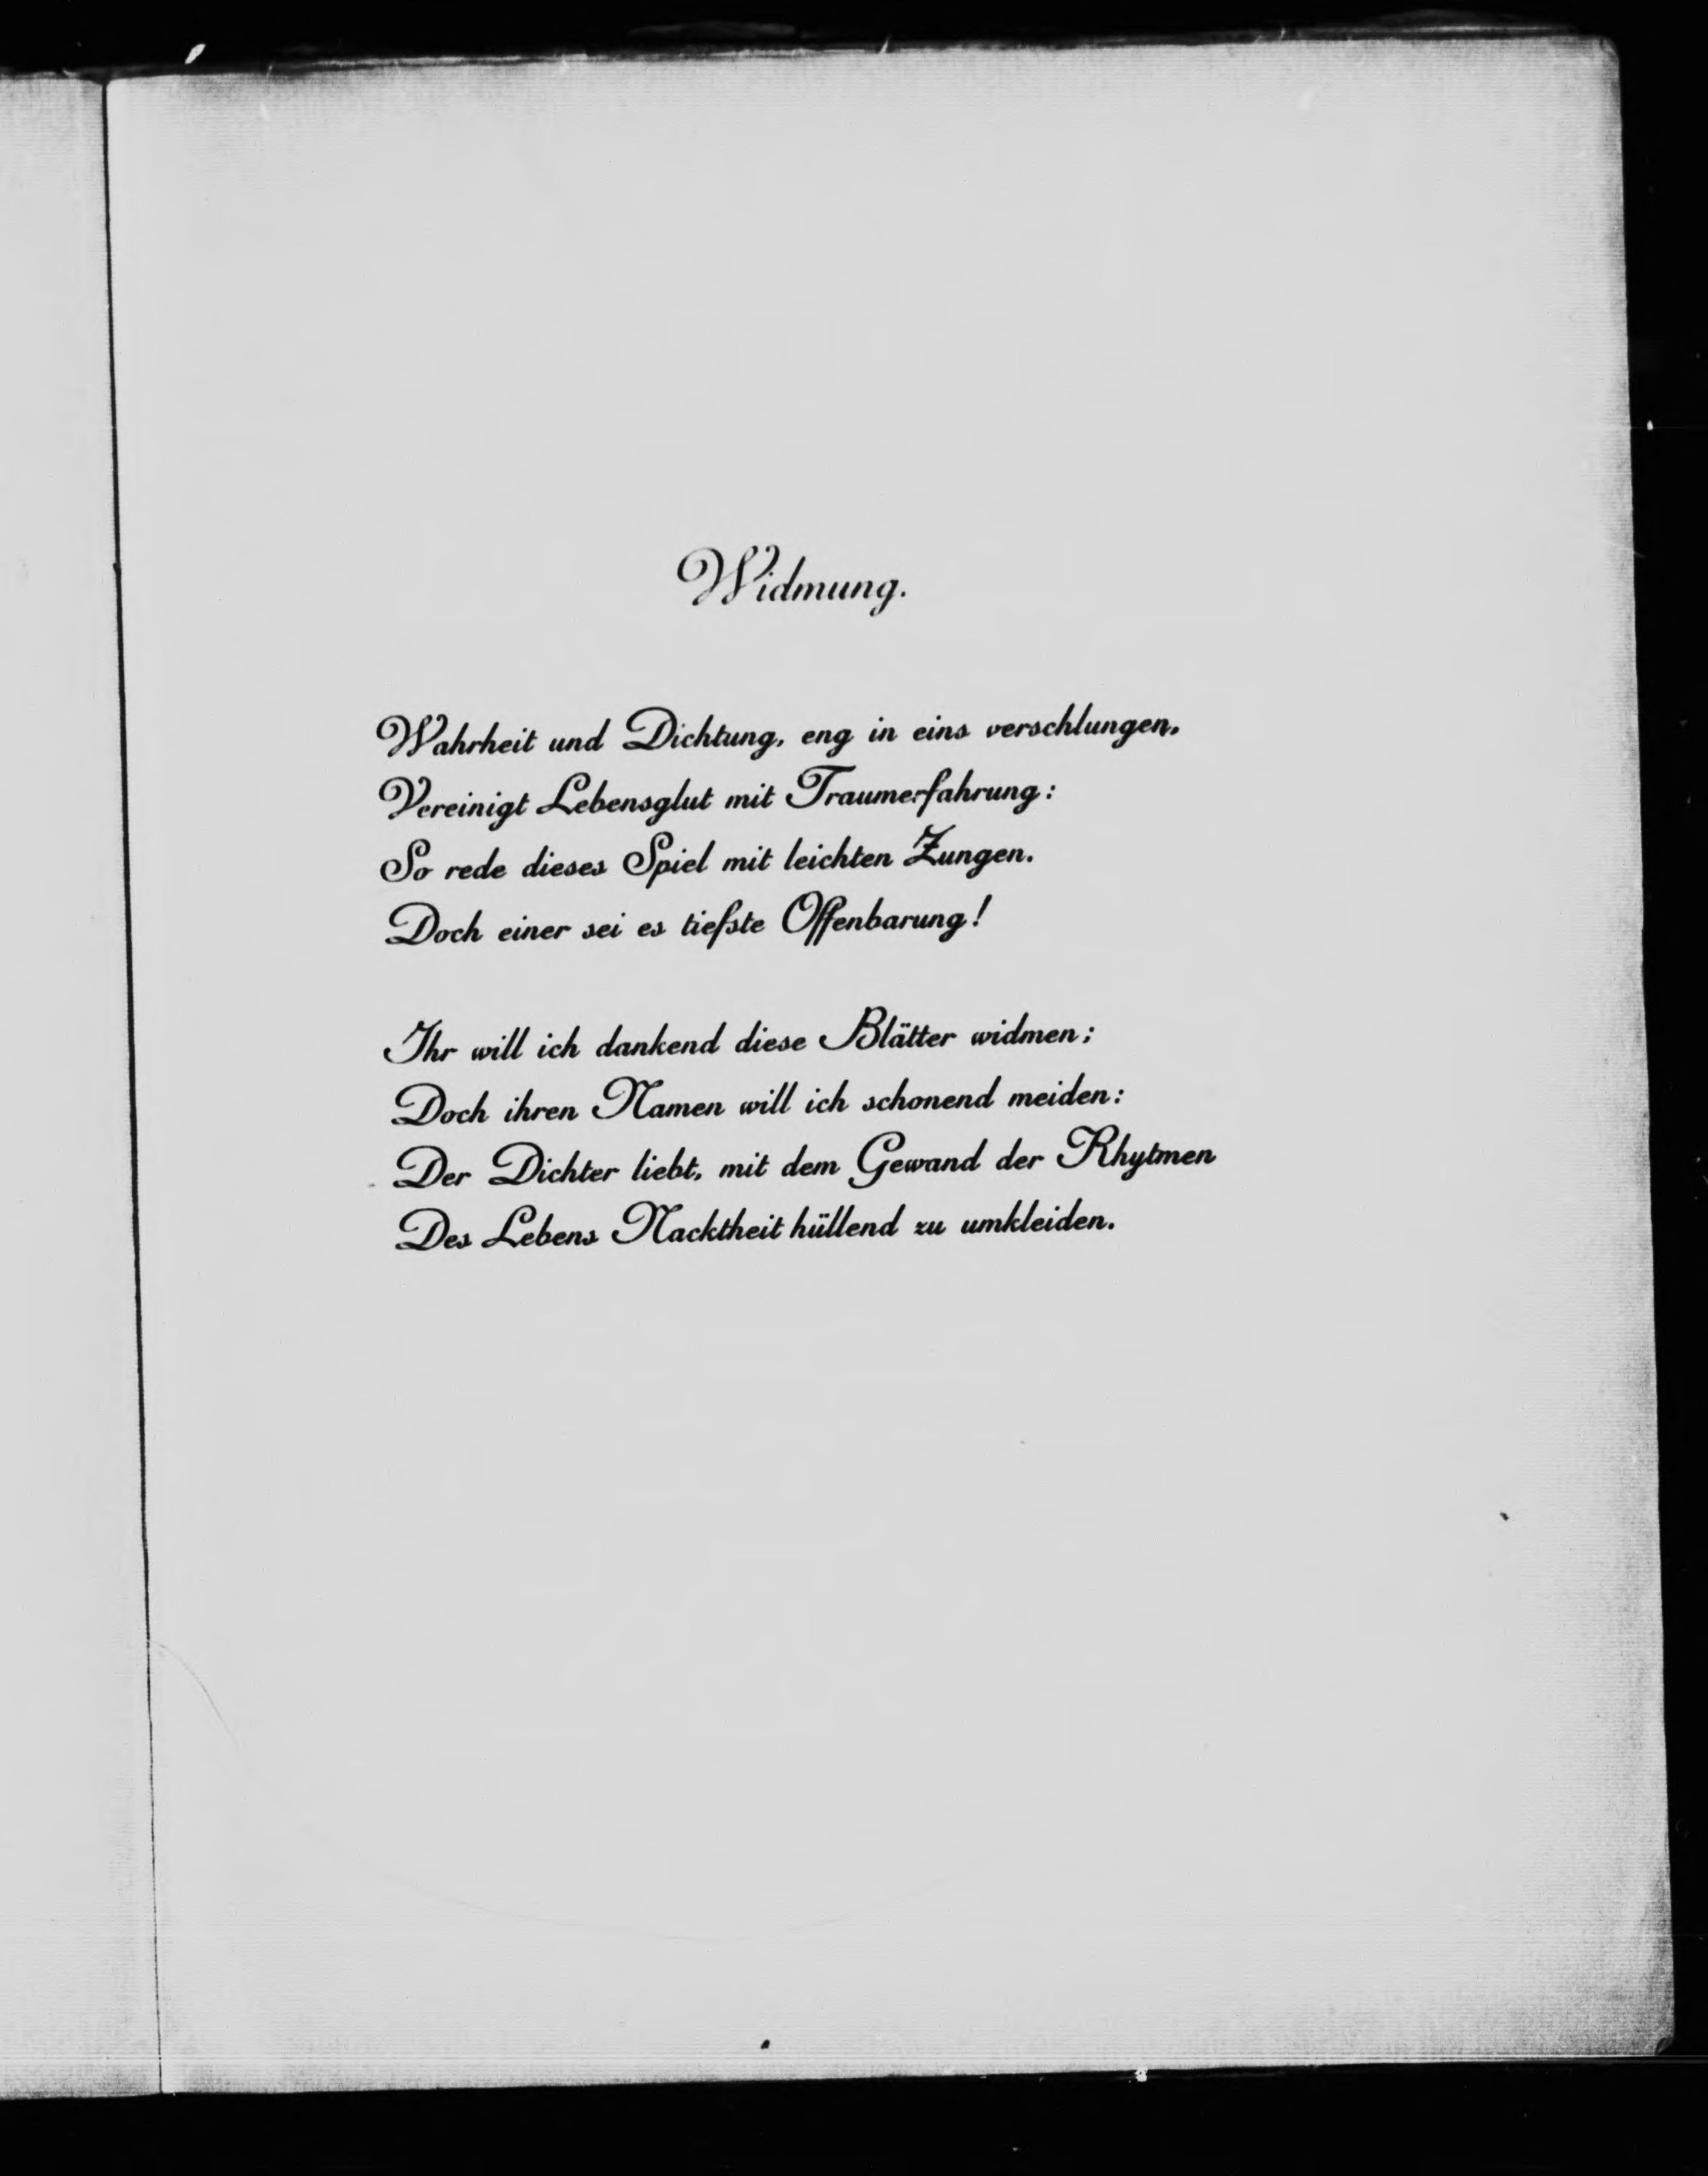 Widmung.
Wahrheit und Dichtung, eng in eins verschlungen,
Vereinigt Lebensglut mit Traumerfahrung:
So rede dieses Spiel mit leichten Zungen.
Doch einer sei es tiefste Offenbarung!
Ihr will ich dankend diese Blätter widmen;
Doch ihren Namen will ich schonend meiden:
Der Dichter liebt, mit dem Gewand der Rhytmen
Des Lebens Nacktheit hüllend zu umkleiden.